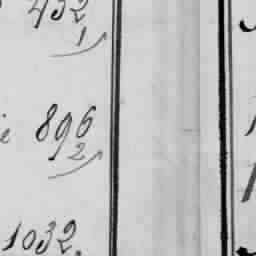 432
1
896
2
1032.